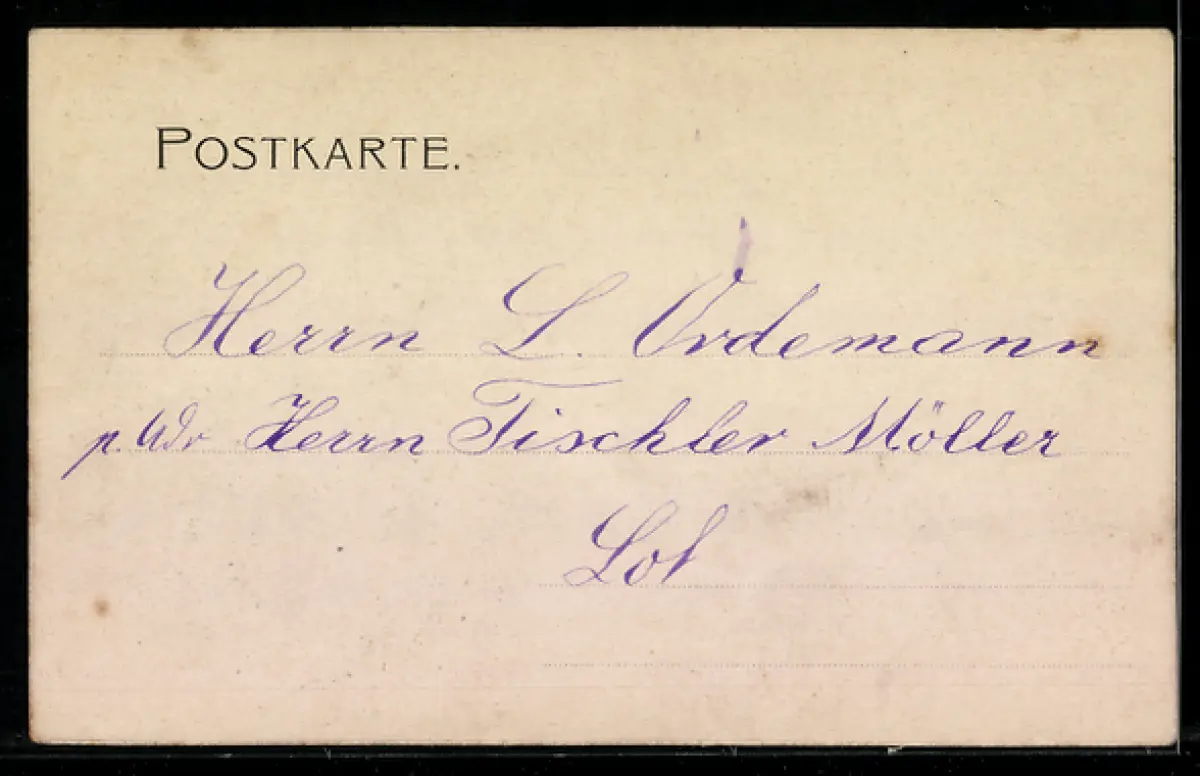 POSTKARTE.
Herrn L. Ordemann
p. Adr Herrn Tischler Möller